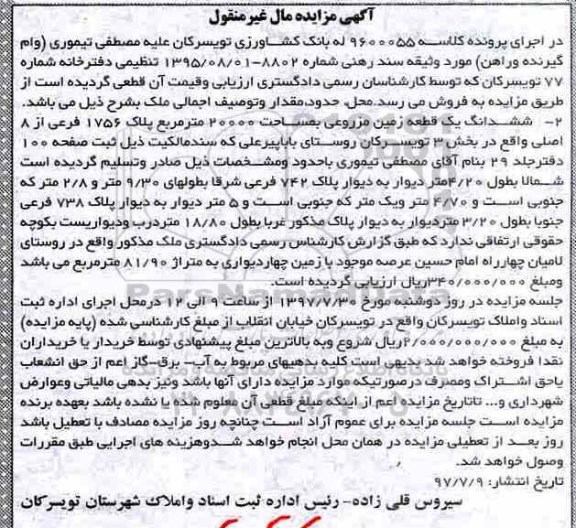 آگهی مزایده مال غیرمنقول
در اجرای پرونده کلاسه ۹۶۰۰۰۵۵ له بانک کشاورزی تویسرکان علیه مصطفی تیموری (وام
گیرنده وراهن) مورد وثیقه سند رهنی شماره ۸۸۰۲-۱۳۹۵/۰۸/۰۱ تنظیمی دفترخانه شماره
۷۷ تویسرکان که توسط کارشناسان رسمی دادگستری ارزیابی وقیمت آن قطعی گردیده است از
طریق مزایده به فروش می رسد.محل، حدود،مقدار وتوصیف اجمالی ملک بشرح ذیل می باشد.
۲- ششدانگ یک قطعه زمین مزروعی بمساحت ۲۰۰۰۰ مترمربع پلاک ۱۷۵۶ فرعی از ۸
اصلی واقع در بخش ۳ تویسرکان روستای باباپیرعلی که سندمالکیت ذیل ثبت صفحه ۱۰۰
دفترجلد ۲۹ بنام آقای مصطفی تیموری باحدود ومشخصات ذیل صادر وتسلیم گردیده است
شمالا بطول ۴/۲۰متر دیوار به دیوار پلاک ۷۴۲ فرعی شرقا بطولهای ۹/۳۰ متر و ۲/۸ متر که
جنوبی است و ۴/۷۰ متر ویک متر که جنوبی است و ۵ متر دیوار به دیوار پلاک ۷۳۸ فرعی
جنوبا بطول ۳/۲۰ متردیوار به دیوار پلاک مذکور غربا بطول ۱۸/۸۰ متردرب ودیواریست بکوچه
حقوقی ارتفاقی ندارد که طبق گزارش کارشناس رسمی دادگستری ملک مذکور واقع در روستای
لامیان چهارراه امام حسین عرصه موجود با زمین چهاردیواری به متراژ ۸۱/۹۰ مترمربع می باشد
ومبلغ ۳۴۰/۰۰۰/۰۰۰ریال ارزیابی گردیده است.
جلسه مزایده در روز دوشنبه مورخ ۱۳۹۷/۷/۳۰ از ساعت ۹ الی ۱۲ درمحل اجرای اداره ثبت
اسناد واملاک تویسرکان واقع در تویسرکان خیابان انقلاب از مبلغ کارشناسی شده (پایه مزایده)
به مبلغ ۲/۰۰۰/۰۰۰/۰۰۰ریال شروع وبه بالاترین مبلغ پیشنهادی توسط خریدار یا خریداران
نقدا فروخته خواهد شد بدیهی است کلیه بدهیهای مربوط به آب- برق-گاز اعم از حق انشعاب
یاحق اشتراک ومصرف درصورتیکه موارد مزایده دارای آنها باشد ونیز بدهی مالیاتی وعوارض
شهرداری و... تاتاریخ مزایده اعم از اینکه مبلغ قطعی آن معلوم شده یا نشده باشد بعهده برنده
مزایده است جلسه مزایده برای عموم آزاد است چنانچه روز مزایده مصادف با تعطیل باشد
روز بعد از تعطیلی مزایده در همان محل انجام خواهد شدوهزینه های اجرایی طبق مقررات
وصول خواهد شد.
تاریخ انتشار: ۹۷/۷/۹
سیروس قلی زاده- رئیس اداره ثبت اسناد واملاک شهرستان تویسرکان